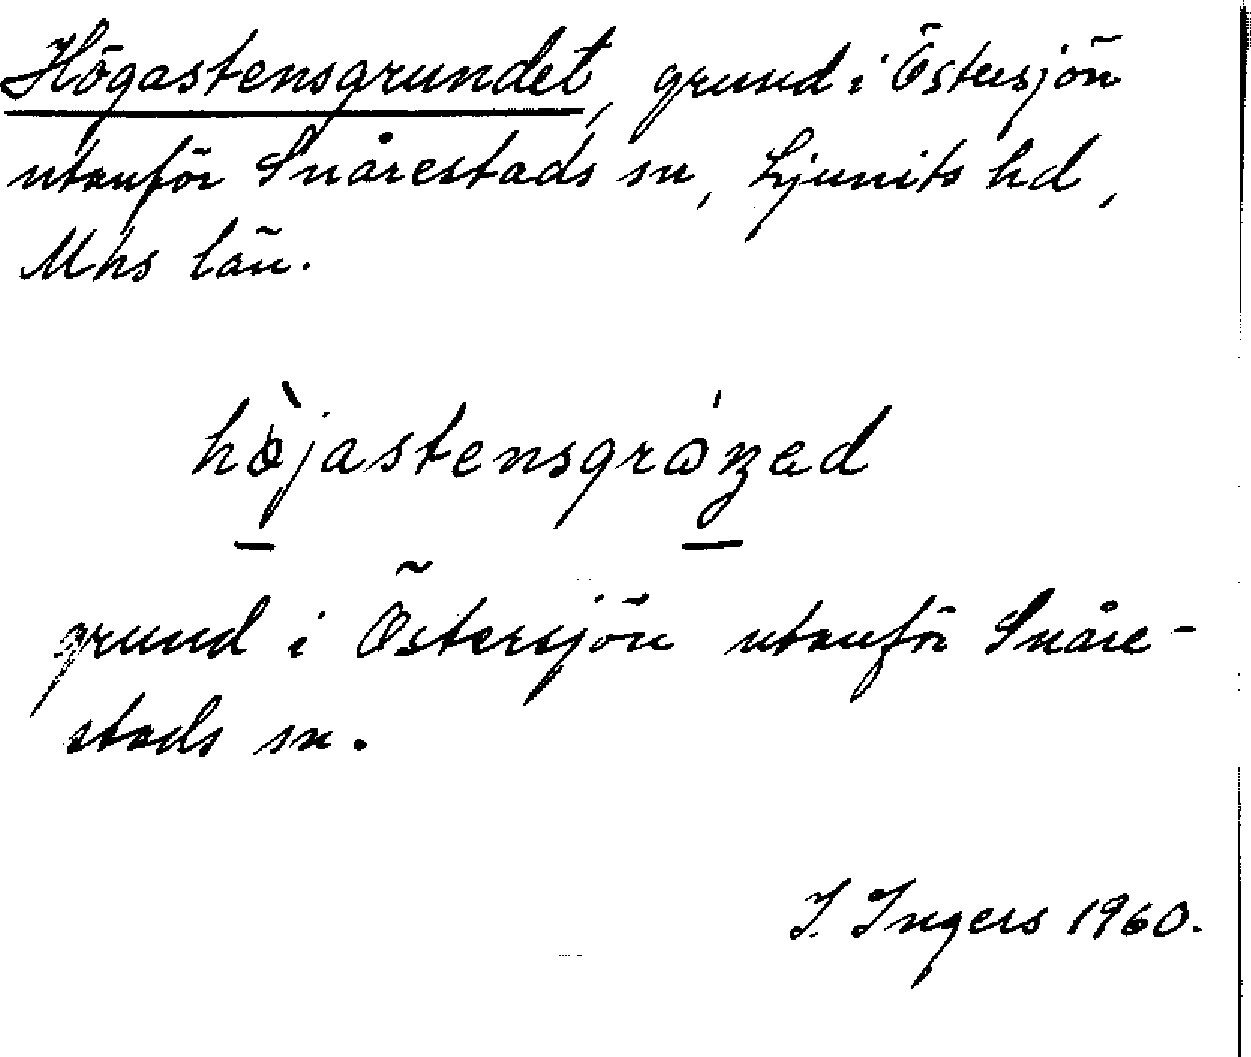 Högastensgrundet, grund i Östersjön
utanför Snårestads sn, Ljunits hd,
Mhs län.
höjastensgrånad
grund i Östersjön utanför Snåre-
stads sn.
I. Ingers 1960.